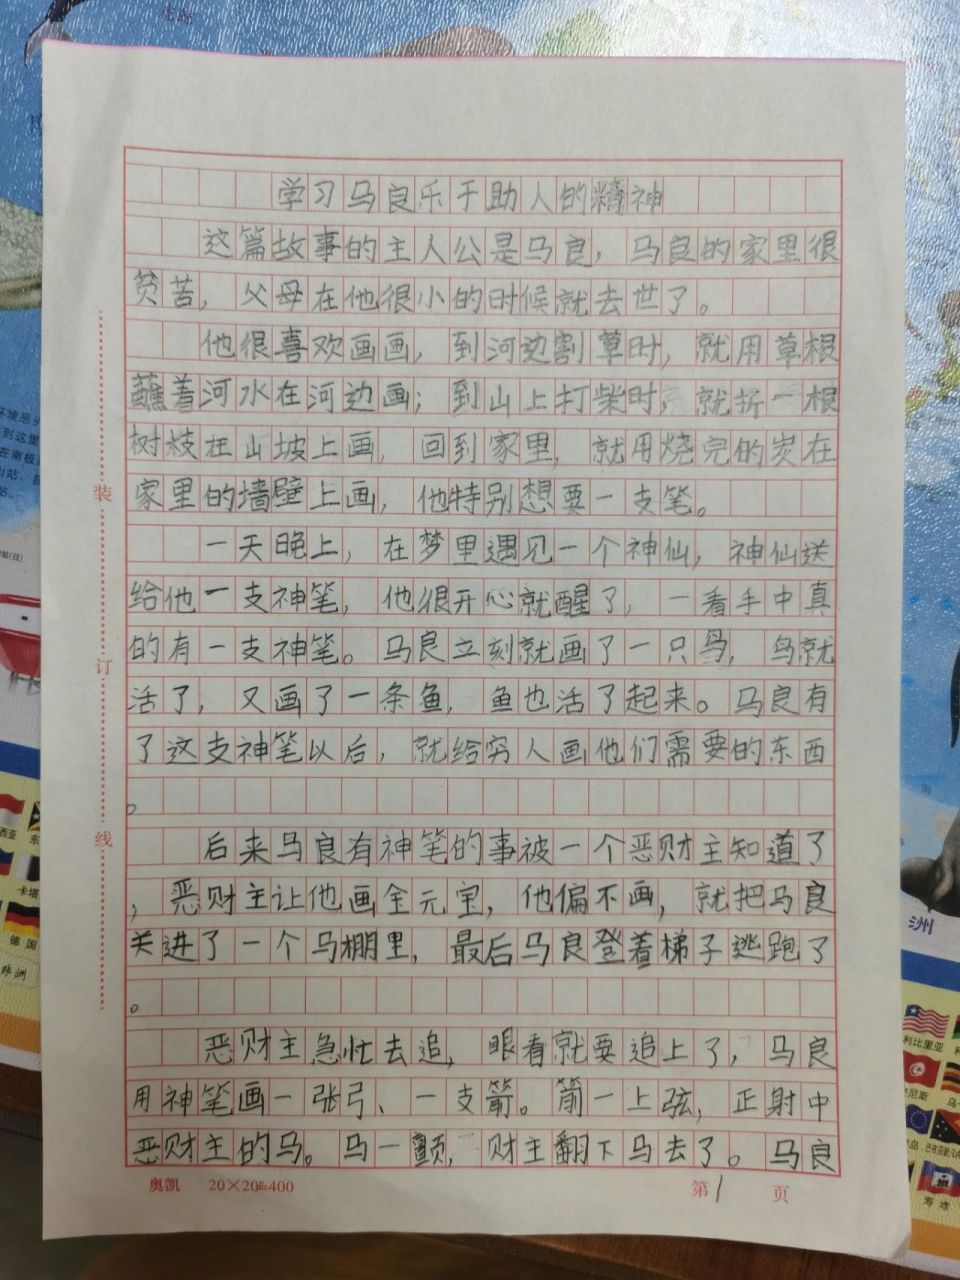 学习马良乐于助人的精神
这篇故事的主人公是马良，马良的家里很
贫苦，父母在他很小的时候就去世了。
他很喜欢画画，到河边割草时，就用草根
蘸着河水在河边画；到山上打柴时，就折一根
树枝在山坡上画，回到家里，就用烧完的炭在
家里的墙壁上画，他特别想要一支笔。
一天晚上，在梦里遇见一个神仙，神仙送
给他一支神笔，他很开心就醒了，一看手中真
的有一支神笔。马良立刻就画了一只鸟，鸟就
活了，又画了一条鱼，鱼也活了起来。马良有
了这支神笔以后，就给穷人画他们需要的东西
。
后来马良有神笔的事被一个恶财主知道了
，恶财主让他画金元宝，他偏不画，就把马良
关进了一个马棚里，最后马良登着梯子逃跑了
。
恶财主急忙去追，眼看就要追上了，马良
用神笔画一张弓、一支箭。箭一上弦，正射中
恶财主的马。马一颤，财主翻下马去了。马良
奥凯 20×20=400
第1页
装
订
线
洲
德国
非洲
利比里亚
海地